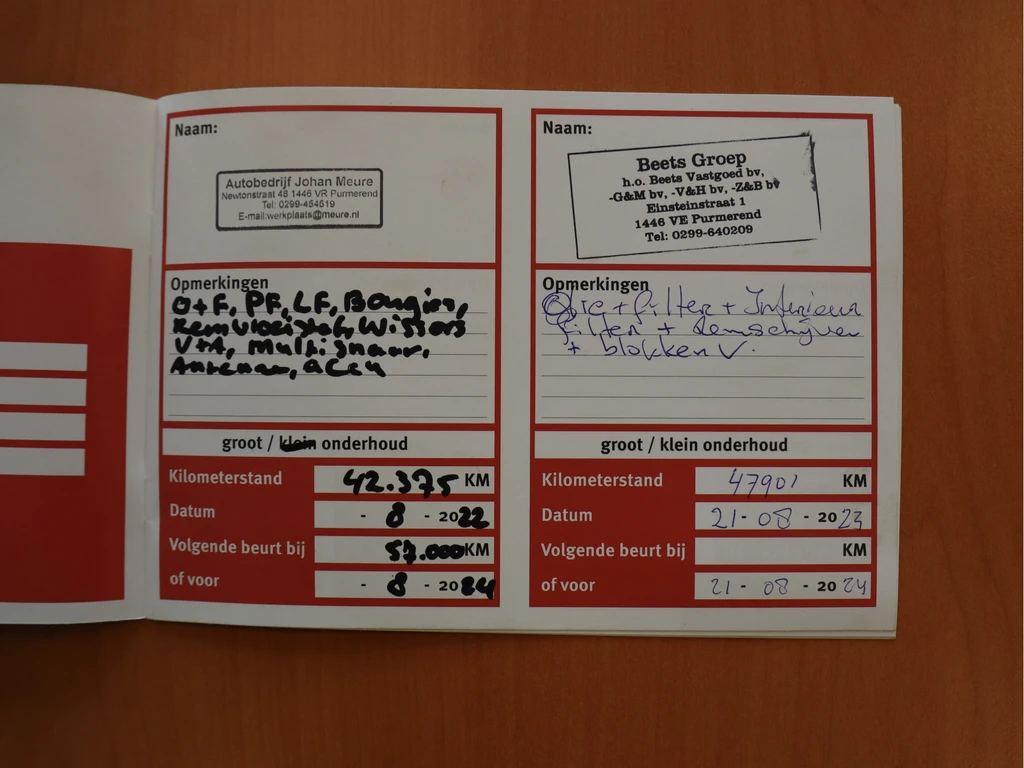 Naam:
Autobedrijf Johan Meure
Newtonstraat 48 1446 VR Purmerend
Tel: 0299-454519
E-mail:werkplaats@meure.nl
Opmerkingen
O+F, PF, LF, Bougies,
Remvloeistof, Wissers
V+A, Multisnaar,
Antenne, accu
groot / klein onderhoud
Kilometerstand 42.375 KM
Datum - 8 - 2022
Volgende beurt bij 57.000 KM
of voor - 8 - 2024
Naam:
Beets Groep
h.o. Beets Vastgoed bv,
-G&M bv, -V&H bv, -Z&B bv
Einsteinstraat 1
1446 VE Purmerend
Tel: 0299-640209
Opmerkingen
Olie + filter + Interieur
filter + Remschijven
+ blokken V.
groot / klein onderhoud
Kilometerstand 47901 KM
Datum 21 - 08 - 2023
Volgende beurt bij KM
of voor 21 - 08 - 2024